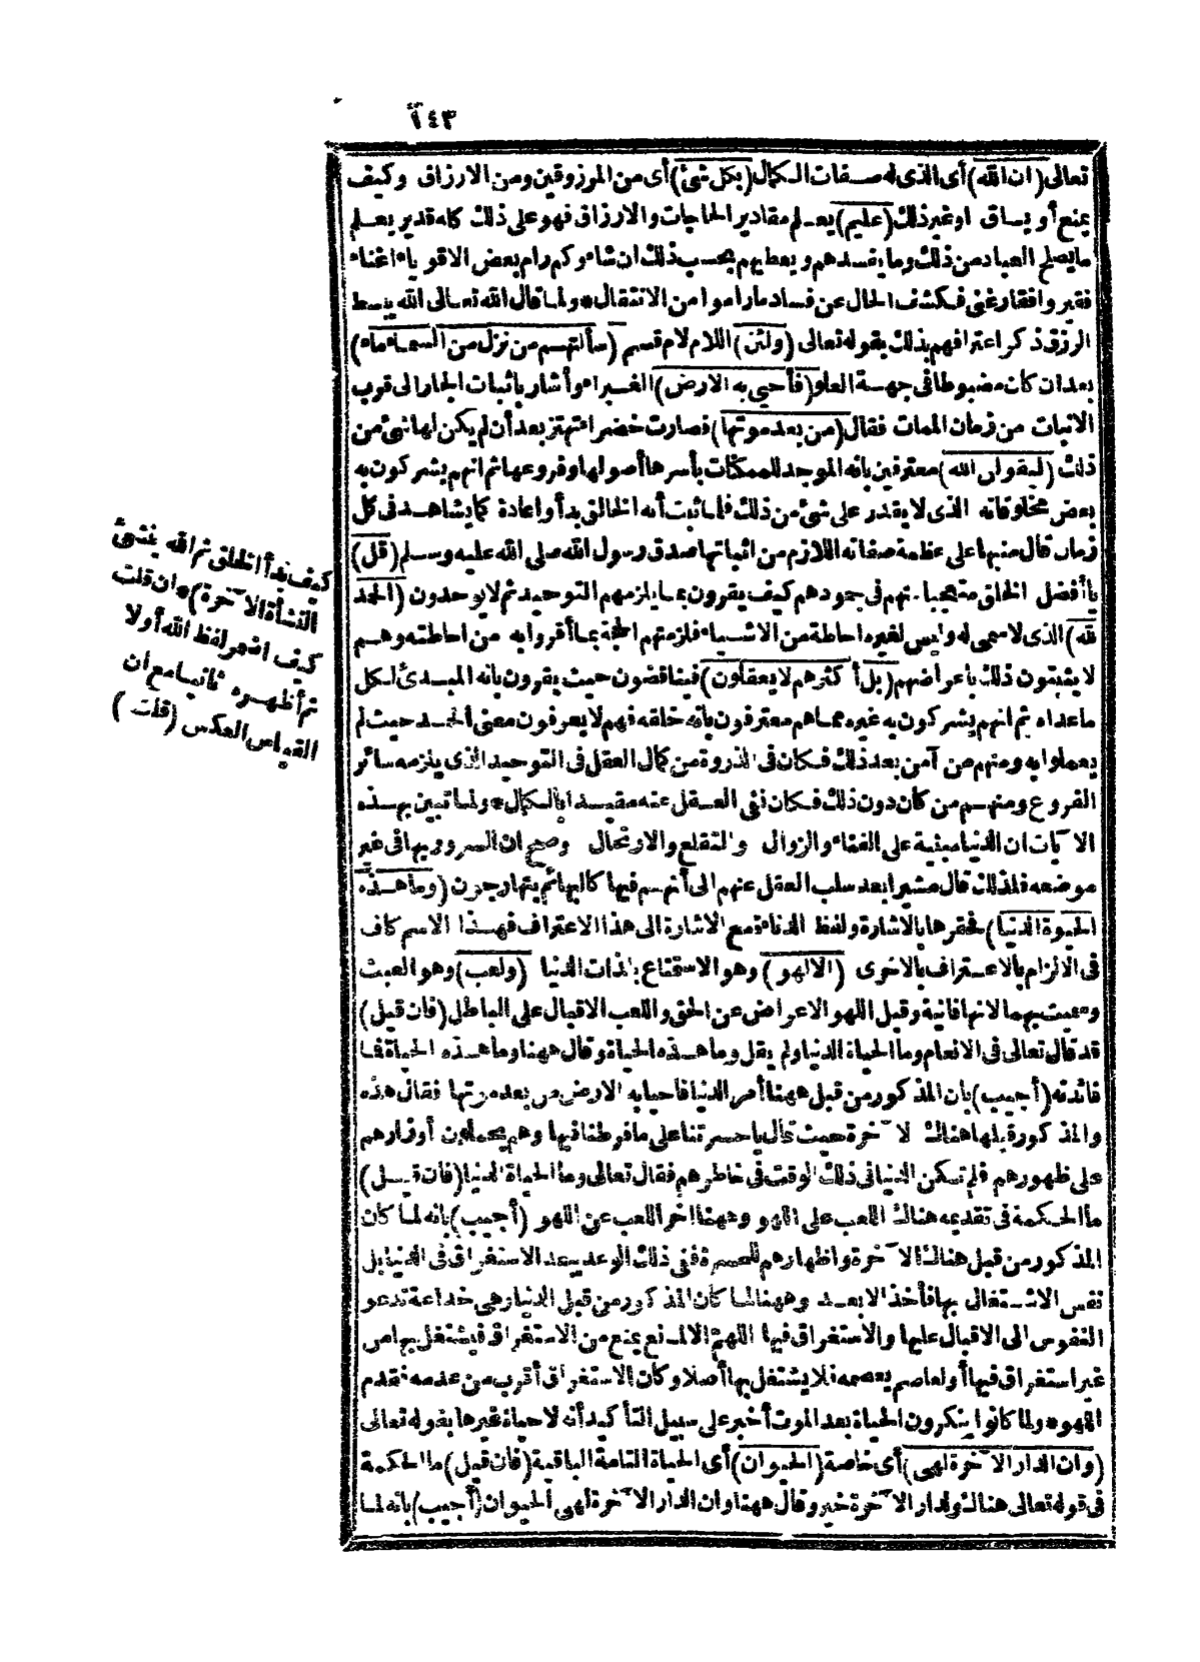 ١٤٣
تعالى (ان الله) أى الذى له صفات الكمال (بكل شئ) أى من المرزوقين ومن الارزاق وكيف
يمنع أو يساق اوغير ذلك (عليم) يعلم مقادير الحاجات والارزاق فهو على ذلك كله قدير يعلم
ما يصلح العباد من ذلك وما يفسدهم ويعطيهم بحسب ذلك ان شاء وكم رام بعض الاقوياء اغناء
فقير وافقار غنى فكشف الحال عن فساد ما راموا من الانتقال * ولما قال الله تعالى الله يبسط
الرزق ذكر اعترافهم بذلك بقوله تعالى (ولئن) اللام لام قسم (سألتهم من نزل من السماء ماء)
بعد ان كان مضبوطا فى جهة العلو (فأحيى به الارض) الغبراء وأشار باثبات الجار الى قرب
الانبات من زمان الممات فقال (من بعد موتها) فصارت خضراء تهتز بعد أن لم يكن لها شئ من
ذلك (ليقولن الله) معترفين بانه الموجد للممكنات بأسرها أصولها وفروعها ثم انهم يشركون به
بعض مخلوقاته الذى لا يقدر على شئ من ذلك فلما ثبت أنه الخالق بدأ واعادة كما يشاهد فى كل
زمان قال منبها على عظمة صفاته اللازم من اثباتها صدق رسول الله صلى الله عليه وسلم (قل)
يا أفضل الخلق متعجبا منهم فى جمودهم كيف يقرون بما يلزمهم التوحيد ثم لا يوحدون (الحمد
لله) الذى لا سمى له وليس لغيره احاطة من الاشياء فلزمتهم الحجة بما أقروا به من احاطته وهم
لا يثبتون ذلك باعراضهم (بل أكثرهم لا يعقلون) فيتناقضون حيث يقرون بانه المبدئ لكل
ما عداه ثم انهم يشركون به غيره مما هم معترفون بانه خلقه فهم لا يعرفون معنى الحمد حيث لم
يعملوا به ومنهم من آمن بعد ذلك فكان فى الذروة من كمال العقل فى التوحيد الذى يلزمه سائر
الفروع ومنهم من كان دون ذلك فكان نفى العقل عنه مقيدا بالكمال * ولما تبين بهذه
الآيات ان الدنيا مبنية على الفناء والزوال والتقلع والارتحال وصح ان السرور بها فى غير
موضعه فلذلك قال مشيرا بعد سلب العقل عنهم الى أنهم فيها كالبهائم يتهارجون (وما هذه
الحيوة الدنيا) فحقرها بالاشارة ولفظ الدناءة مع الاشارة الى هذا الاعتراف فهذا الاسم كاف
فى الالزام بالاعتراف بالاخرى (الا لهو) وهو الاستمتاع بلذات الدنيا (ولعب) وهو العبث
وسميت بهما لانها فانية وقيل اللهو الاعراض عن الحق واللعب الاقبال على الباطل (فان قيل)
قد قال تعالى فى الانعام وما الحياة الدنيا ولم يقل وما هذه الحياة وقال ههنا وما هذه الحياة فما
فائدته (أجيب) بان المذكور من قبل ههنا أمر الدنيا فاحيا به الارض من بعد موتها فقال هذه
والمذكورة قبلها هناك الآخرة حيث قال يا حسرتنا على ما فرطنا فيها وهم يحملون أوزارهم
على ظهورهم فلم تكن الدنيا فى ذلك الوقت فى خاطرهم فقال تعالى وما الحياة الدنيا (فان قيل)
ما الحكمة فى تقديمه هناك اللعب على اللهو وههنا اخر اللعب عن اللهو (أجيب) بانه لما كان
المذكور من قبل هناك الآخرة واظهارهم للحسرة ففى ذلك الوعد يبعد الاستغراق فى الدنيا بل
نفس الاشتغال بها فأخذ الابعد وههنا لما كان المذكور من قبل الدنيا وهى خداعة تدعو
النفوس الى الاقبال عليها والاستغراق فيها اللهم الا لمانع يمنع من الاستغراق فيشتغل بها من
غير استغراق فيها أو لعاصم يعصمه فلا يشتغل بها أصلا وكان الاستغراق أقرب من عدمه فقدم
اللهو * ولما كانوا ينكرون الحياة بعد الموت أخبر على سبيل التأكيد أنه لا حياة غيرها بقوله تعالى
(وان الدار الآخرة لهى) أى خاصة (الحيوان) أى الحياة التامة الباقية (فان قيل) ما الحكمة
فى قوله تعالى هناك ولدار الآخرة خير وقال ههنا وان الدار الآخرة لهى الحيوان (أجيب) بانه لما
كيف بدأ الخلق ثم الله ينشئ
النشأة الآخرة) وان قلت
كيف اضمر لفظ الله أولا
ثم أظهره ثانيا مع ان
القياس العكس (قلت)